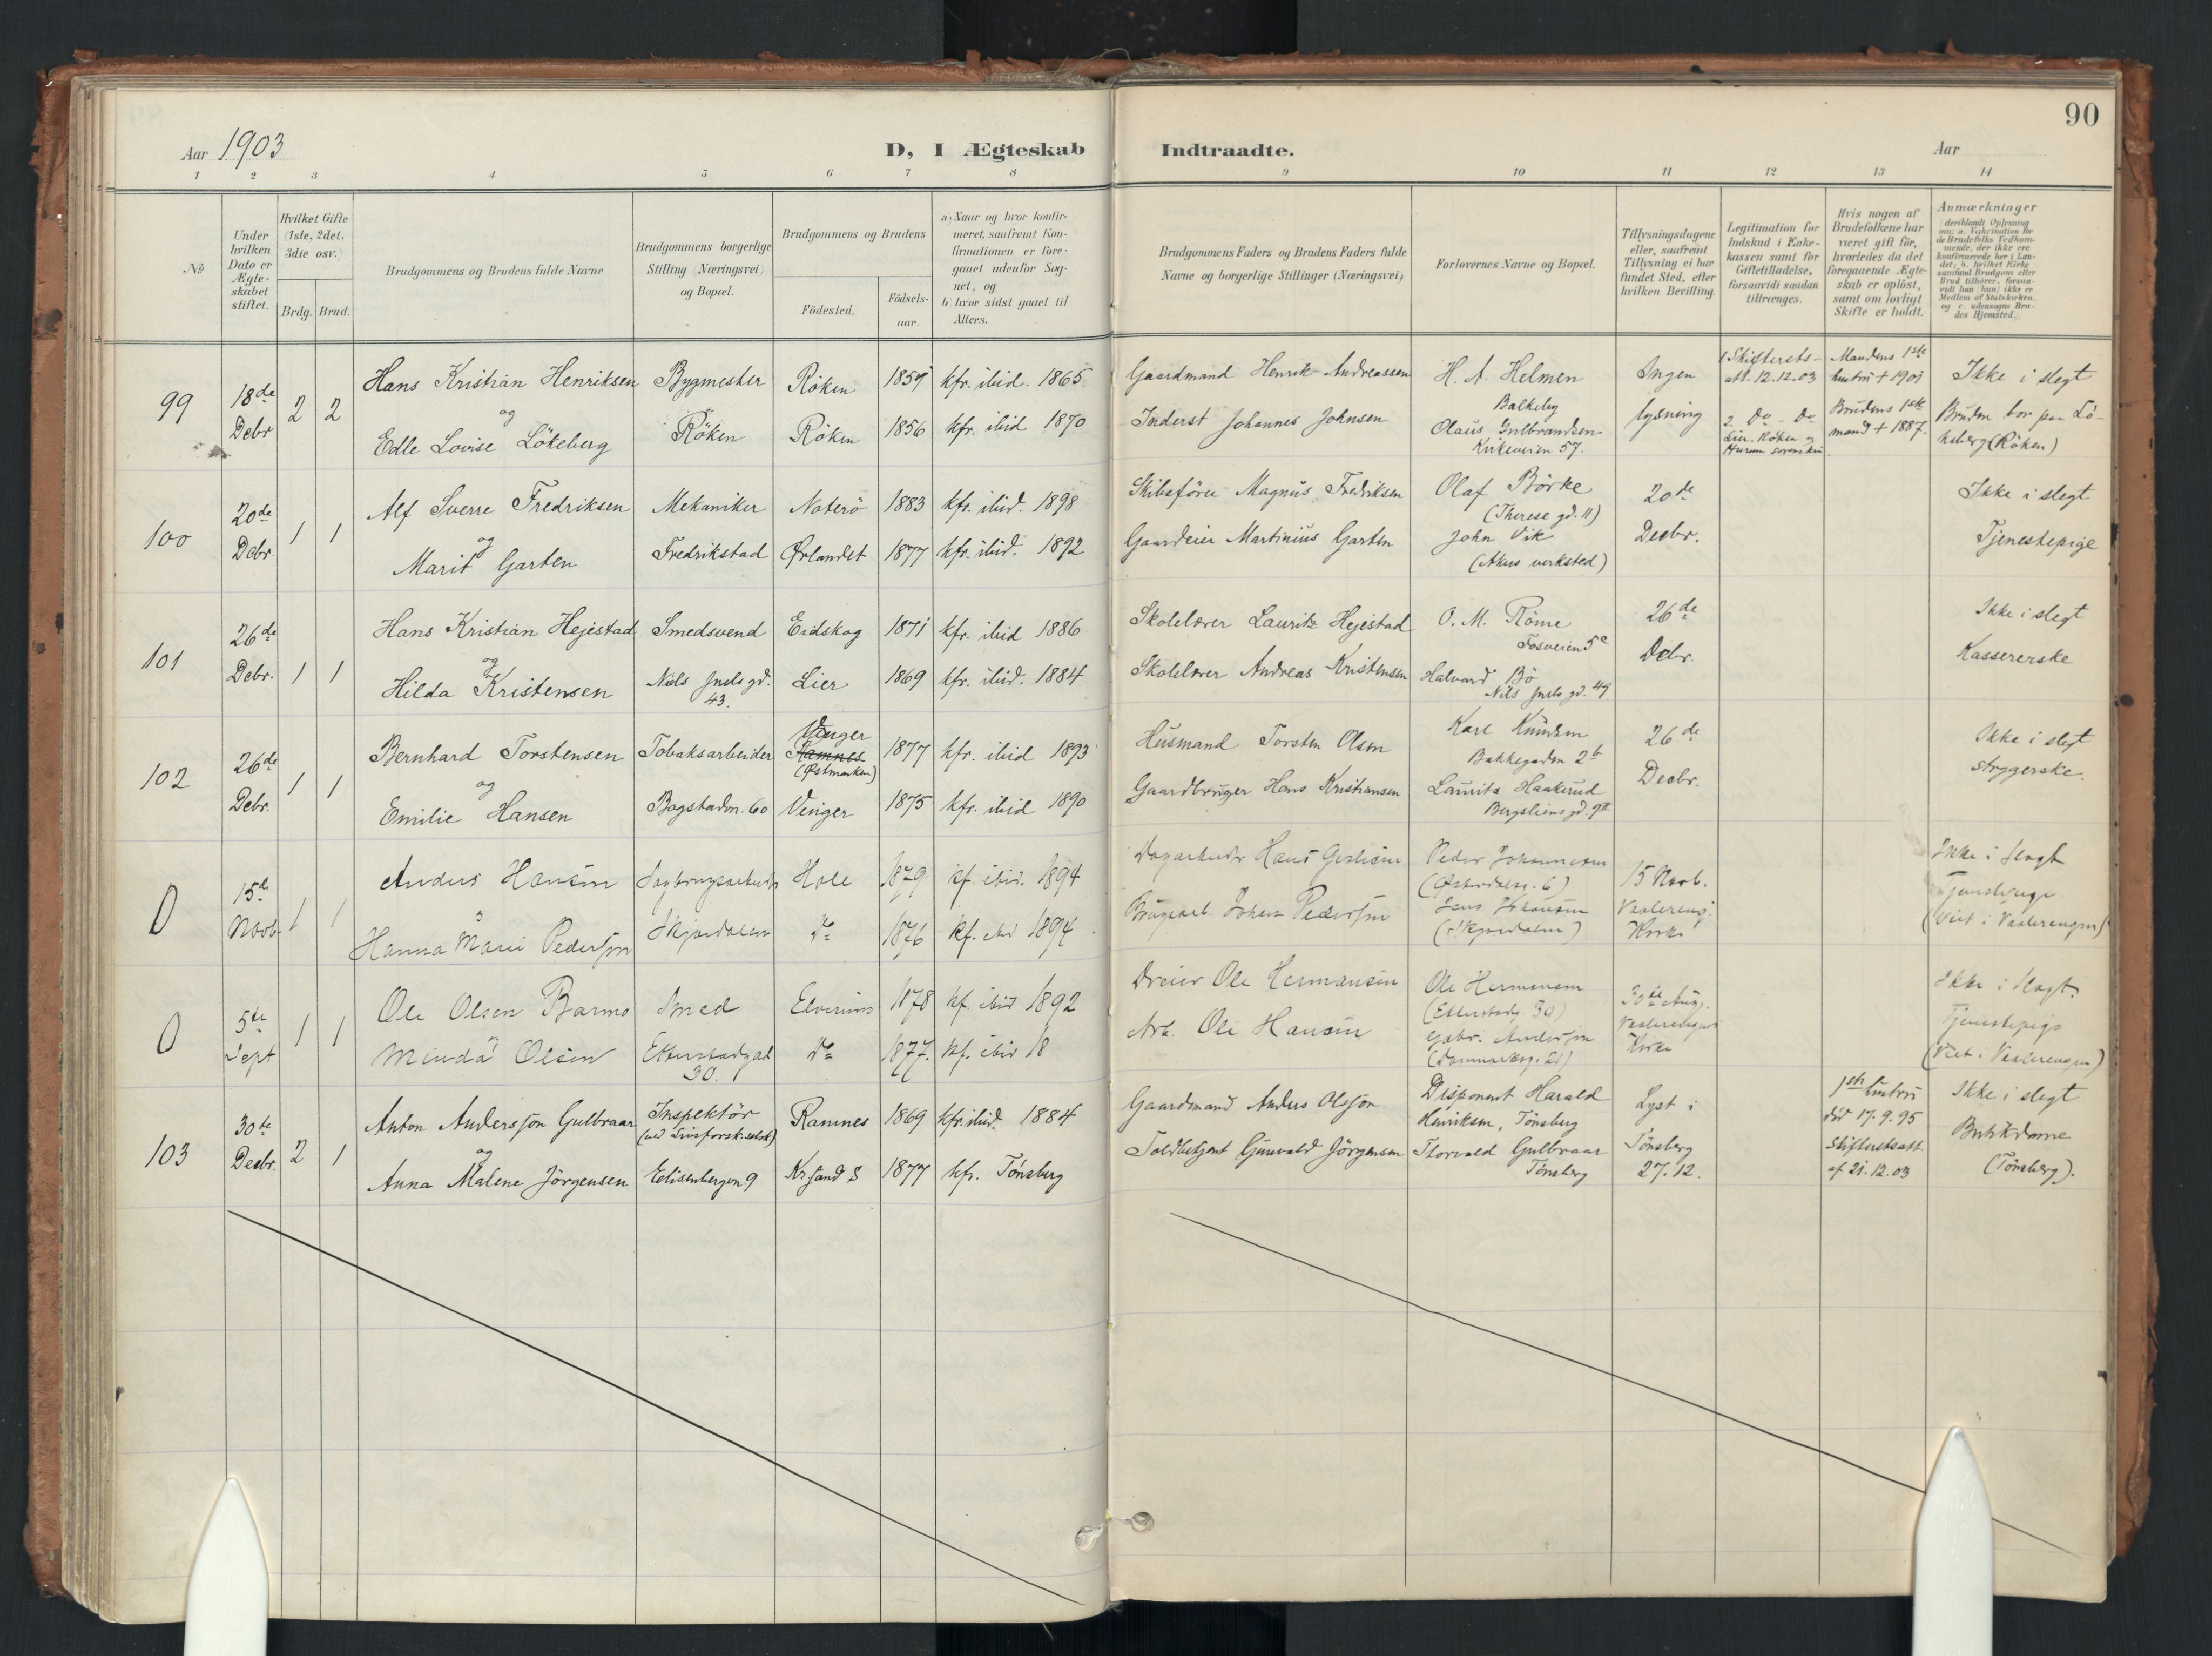 90
Aar 1903 D, I Ægteskab Indtraadte. Aar
1 2 3 4 5 6 7 8 9 10 11 12 13 14
No
Under hvilken Dato er Ægteskabet stiftet.
Hvilket Gifte (1ste, 2det, 3die osv.)
Brdg. Brud.
Brudgommens og Brudens fulde Navne
Brudgommens borgerlige Stilling (Næringsvei) og Bopæl.
Brudgommens og Brudens
Födested.
Födselsaar.
a) Naar og hvor konfirmeret, saafremt Konfirmationen er foregaaet udenfor Sognet, og
b) hvor sidst gaaet til Alters.
Brudgommens Faders og Brudens Faders fulde Navne og borgerlige Stillinger (Næringsvei)
Forlovernes Navne og Bopæl.
Tillysningsdagene eller, saafremt Tillysning ei har fundet Sted, efter hvilken Bevilling.
Legitimation for Indskud i Enkekassen samt for Giftetilladelse, forsaavidt saadan tiltrænges.
Hvis nogen af Brudefolkene har været gift för, hvorledes da det foregaaende Ægteskab er oplöst, samt om lovligt Skifte er holdt.
Anmærkninger
deriblandt Oplysning om: a. Vakcination for de Brudefolks Vedkommende, der ikke ere konfirmerede her i Landet; b. hvilket Kirkesamfund Brudgom eller Brud tilhører, forsaavidt han (hun) ikke er Medlem af Statskirken, og c. udensogns Brudes Hjemsted.
99 18de Debr 2 2
Hans Kristian Henriksen Bygmester Röken 1851 kfr. ibid. 1865
og
Edle Lovise Lökeberg Röken Röken 1856 kfr. ibid 1870
Gaardmand Henrik Andreassen H. A. Helmen Balkeby Ingen
Inderst Johannes Johnsen Olaus Gulbrandsen Kirkeveien 57. lysning
1 Skifterets-att. 12.12.03
2. Do Do Lier, Röken og Hurum
Mandens 1ste hustru + 1901
Brudens 1ste mand + 1887.
Ikke i slegt
Bruden bor paa Lökeberg (Röken)
100 20de Debr 1 1
Alf Sverre Fredriksen Mekaniker Noterö 1883 kfr. ibid. 1898
og
Marit Garten Fredrikstad Ørlandet 1877 kfr. ibid. 1892
Skibsförer Magnus Fredriksen Olaf Börke (Therese gd. 11) 20de
Gaardeier Martinius Garten John Vik (Akers verksted) Decbr.
Ikke i slegt
Tjenestepige
101 26de Debr. 1 1
Hans Kristian Hejestad Smedsvend Eidskog 1871 kfr. ibid 1886
og
Hilda Kristensen Niels Juels gd. 43. Lier 1869 kfr. ibid. 1884
Skolelærer Lauritz Hejestad O. M. Röme Fosveien 5c 26de
Skolelærer Andreas Kristensen Halvard Bö Nils Juels gd. 49 Debr.
Ikke i slegt
Kassererske
102 26de Debr. 1 1
Bernhard Torstensen Tobaksarbeider Vinger Ramnes (Østmarken) 1877 kfr. ibid 1893
og
Emilie Hansen Bogstadvn. 60 Vinger 1875 kfr. ibid 1890
Husmand Torsten Olsen Karl Knudsen Bakkegaden 2b 26de
Gaardbruger Hans Kristiansen Lauritz Haakerud Bergsliens gd. Decbr.
Ikke i slegt
strygerske.
0 15de Novb. 1 1
Anders Hansen Hole 1879 kf. ibid. 1894
Hanna Marie Pedersen Skjærdalen do 1876 kf. ibid 1894
Hans Peder Johannesen (Østerdalsg. 6) 15 Novb.
Johan Pedersen (Skjærdalen) Vaalereng. Kirke
Ikke i Slegt
Tjenestepige
(Viet i Vaalerengen)
0 5te Sept 1 1
Ole Olsen Barmo Smed Elverum 1878 kf. ibid 1892
Minda Olsen Etterstadgad 30. do 1877. kf. ibid 18
Dreier Ole Hermansen Ole Hermansen (Etterstadg. 30) 30te Aug.
Arb. Ole Hansen Gabr. Andersen (Danmarksg. 21) Vaalerengens Kirke
Ikke i Slegt.
Tjenestepige
(Viet i Vaalerengen)
103 30te Decbr. 2 1
Anton Andersson Gulbraar Inspektör (ved Livsforsk.selsk) Ramnes 1869 kfr. ibid. 1884
og
Anna Malene Jörgensen Edisenbergen 9 Kr.sand S 1877 kfr. Tönsberg
Gaardmand Anders Olsson Disponent Harald Henriksen, Tönsberg Lyst i
Toldbetjent Gunvald Jörgensen Thorvald Gulbraar Tönsberg Tönsberg 27.12.
1ste hustru död 17.9.95
Skifteretsatt af 21.12.03
Ikke i slegt
Butikdame
(Tönsberg).